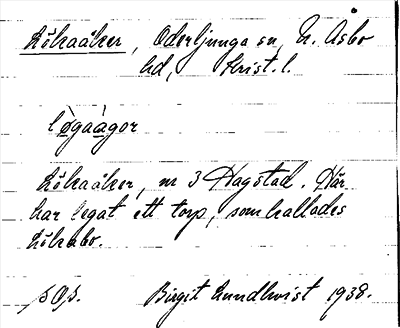 Lökaåker, Oderljunga sn, N. Åsbo
hd, Krist. l.
løgaågor
Lökaåker, nr 3 Hagstad. Här
har legat ett torp, som kallades
Lökabo.
Birgit Lundkvist 1938.